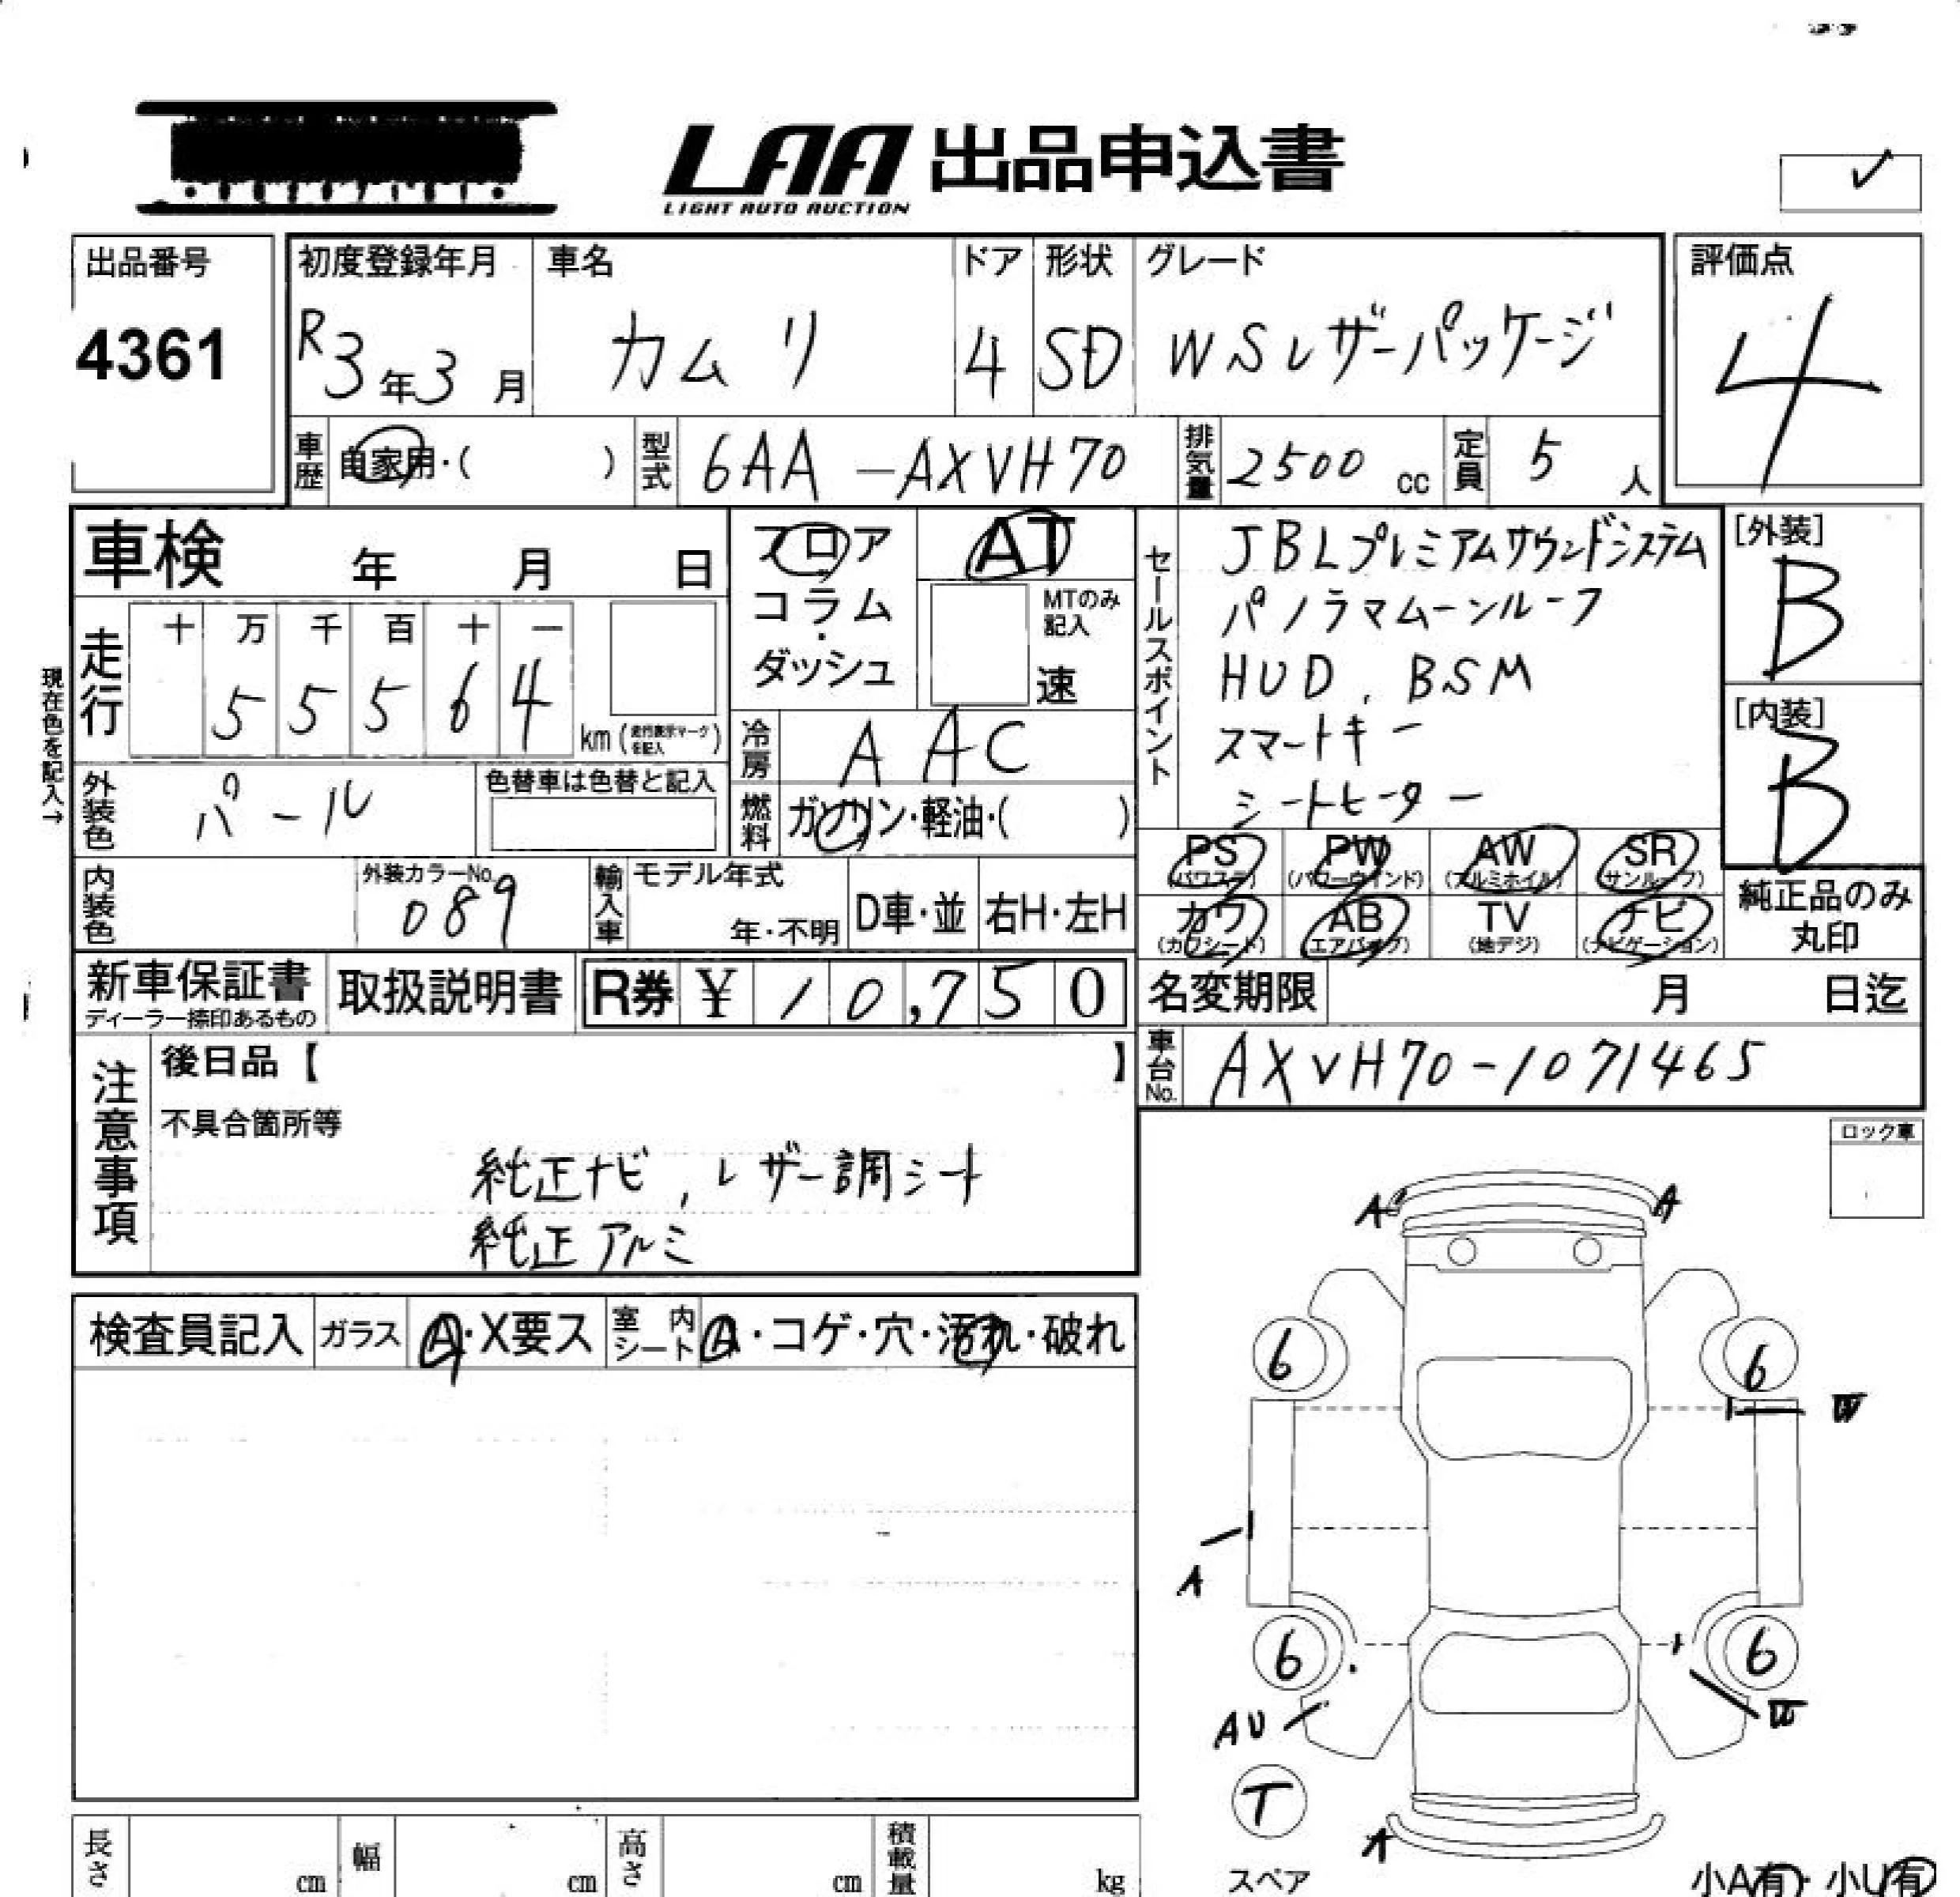 LAA 出品申込書
LIGHT AUTO AUCTION
✓
出品番号
4361
初度登録年月
R3年3月
車名
カムリ
ドア
4
形状
SD
グレード
WSレザーパッケージ
評価点
4
車歴
自家用・( )
型式
6AA-AXVH70
排気量
2500 cc
定員
5人
車検 年 月 日
フロア
コラム
・
ダッシュ
AT
MTのみ
記入
速
セールスポイント
JBLプレミアムサウンドシステム
パノラマムーンルーフ
HUD, BSM
スマートキー
シートヒーター
[外装]
B
[内装]
B
現在色を記入→
走行
十 万 千 百 十 一
5 5 5 6 4
km(走行表示マークを記入)
冷房
AAC
外装色
パール
色替車は色替と記入
燃料
ガソリン・軽油・( )
PS (パワステ)
PW (パワーウインド)
AW (アルミホイル)
SR (サンルーフ)
カワ (カワシート)
AB (エアバッグ)
TV (地デジ)
ナビ (ナビゲーション)
純正品のみ
丸印
内装色
外装カラーNo.
089
輸入車
モデル年式
年・不明
D車・並
右H・左H
新車保証書
ディーラー捺印あるもの
取扱説明書
R券 ¥ 10,750
名変期限 月 日迄
車台No.
AXVH70-1071465
注意事項
後日品【 】
不具合箇所等
純正ナビ, レザー調シート
純正アルミ
ロック車
検査員記入
ガラス
A・X要ス
室内シート
A・コゲ・穴・汚れ・破れ
A A
6 6
W
A
6 6
AU W
T
A
スペア
小A有・小U有
長さ cm
幅 cm
高さ cm
積載量 kg